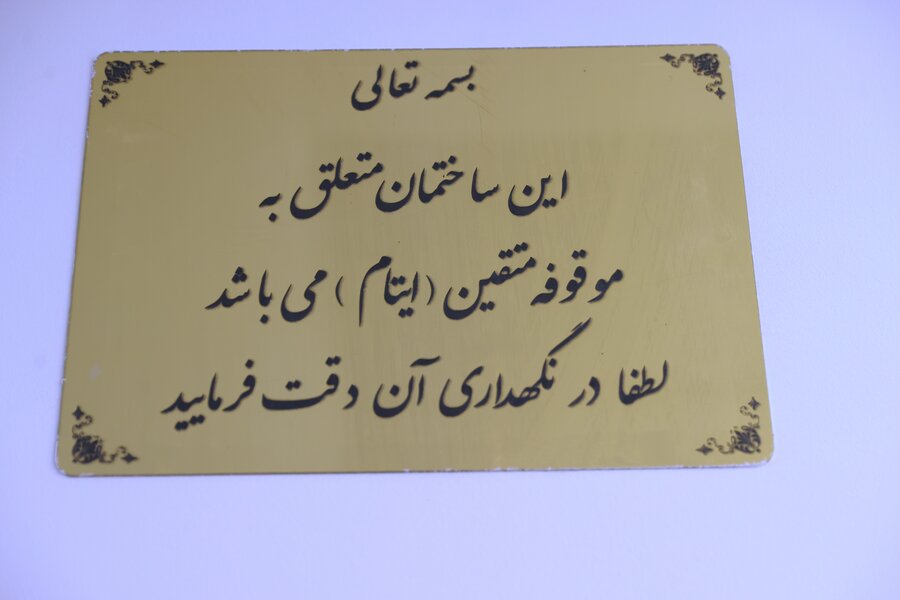 بسمه تعالی
این ساختمان متعلق به
موقوفه متقین (ایتام) می باشد
لطفا در نگهداری آن دقت فرمایید